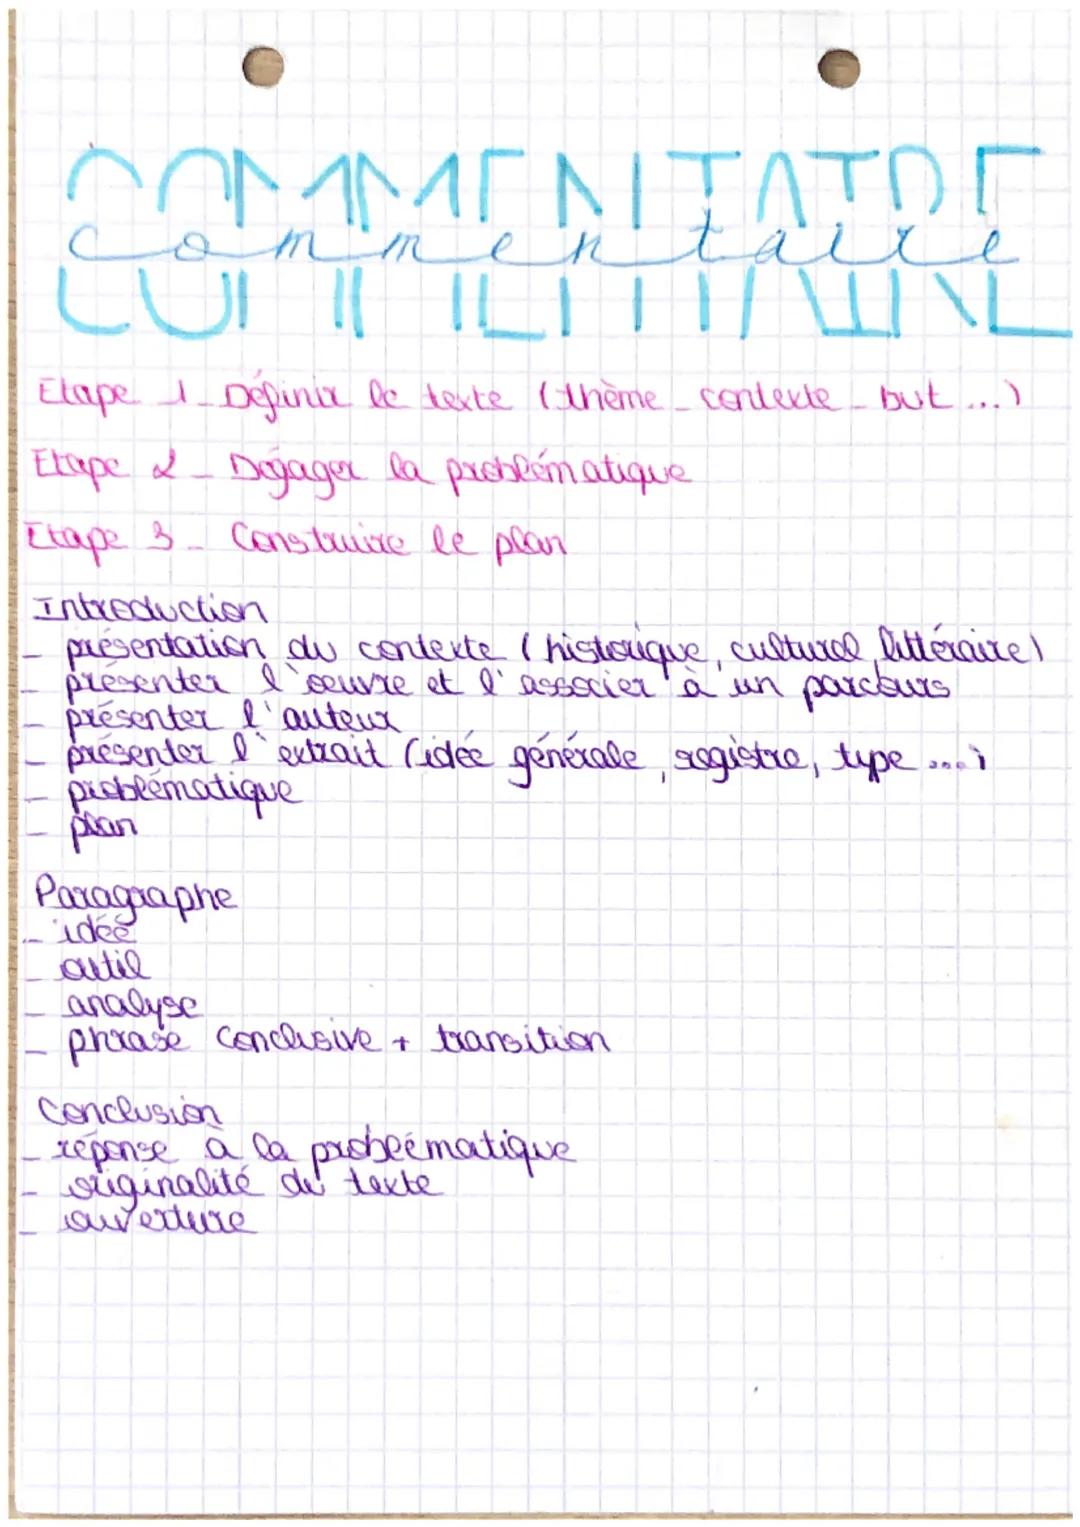 COMMENTAIRE
commentaire
Etape 1_ Définir le texte (thème _ contexte _ but ...)
Etape 2_ Dégager la problématique
Etape 3_ Construire le plan
Introduction
_ présentation du contexte (historique, culturel, littéraire)
_ présenter l'oeuvre et l'associer à un parcours
_ présenter l'auteur
_ présenter l'extrait (idée générale, registre, type ...)
_ problématique
_ plan
Paragraphe
_ idée
_ outil
_ analyse
_ phrase conclusive + transition
Conclusion
_ réponse à la problématique
_ originalité du texte
_ ouverture